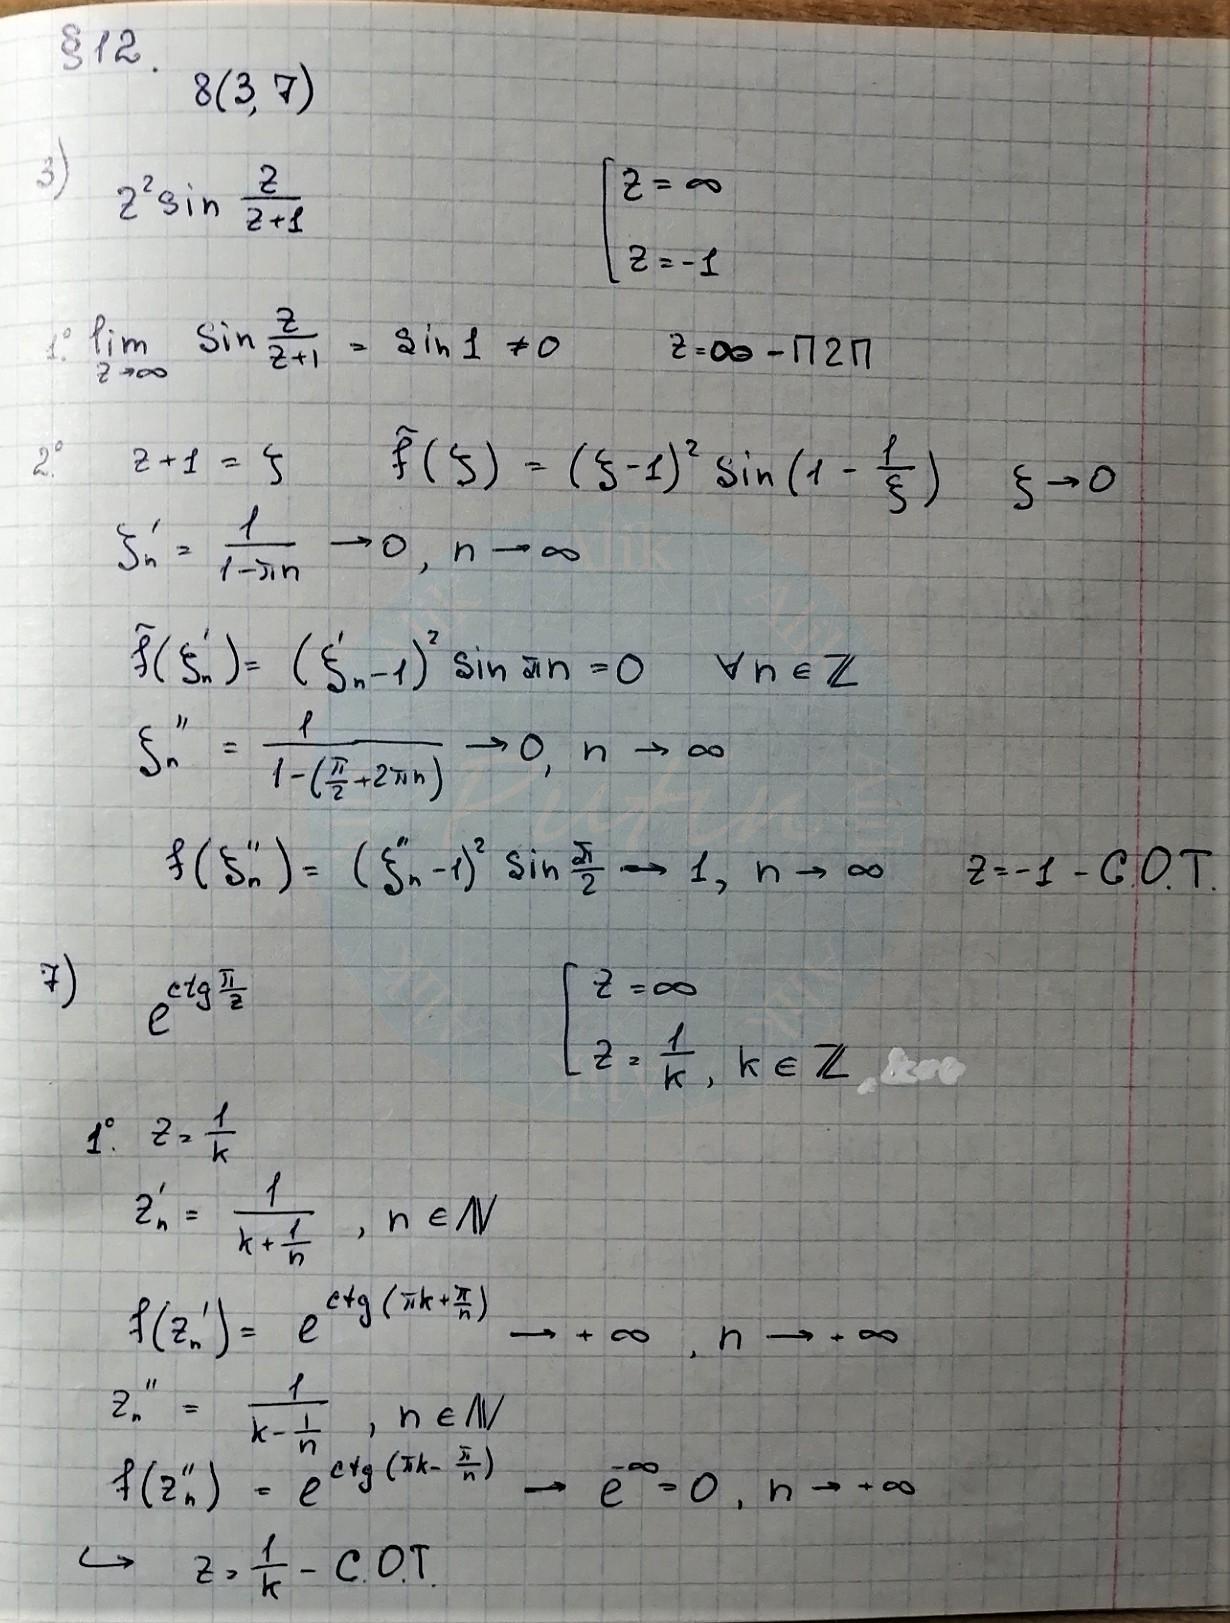 §12.
8(3, 7)
3) z² sin z/(z+1) [ z = ∞
z = -1
1° lim z→∞ sin z/(z+1) = sin 1 ≠ 0 z = ∞ - П2П
2° z+1 = ξ f̃(ξ) = (ξ-1)² sin(1 - 1/ξ) ξ → 0
ξₙ' = 1/(1-πn) → 0, n → ∞
f̃(ξₙ') = (ξₙ'-1)² sin πn = 0 ∀n ∈ ℤ
ξₙ'' = 1/(1-(π/2+2πn)) → 0, n → ∞
f(ξₙ'') = (ξₙ''-1)² sin π/2 → 1, n → ∞ z = -1 - С.О.Т.
7) e^(ctg π/z) [ z = ∞
z = 1/k, k ∈ ℤ
1°. z = 1/k
zₙ' = 1/(k + 1/n), n ∈ ℕ
f(zₙ') = e^(ctg(πk + π/n)) → +∞, n → +∞
zₙ'' = 1/(k - 1/n), n ∈ ℕ
f(zₙ'') = e^(ctg(πk - π/n)) → e^(-∞) = 0, n → +∞
↪ z = 1/k - С.О.Т.